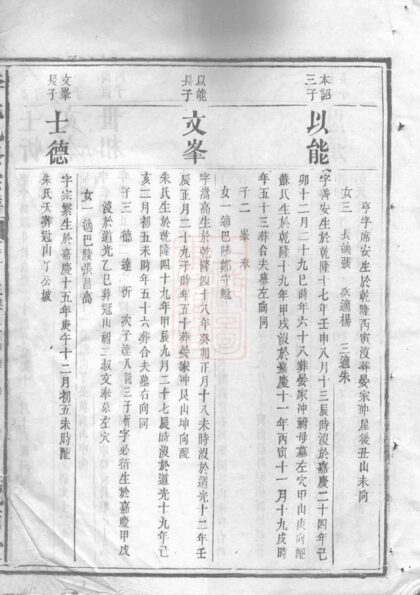 亨字席安生於乾隆丙寅沒葬晏家冲屋後丑山未向
女三 長適張 次適楊 三適朱
本詔
三子
以能
字善安生於乾隆十七年壬申八月十三辰時沒於嘉慶二十四年己
卯十二月二十九巳時年六十八葬晏家冲祔母墓左穴甲山庚向配
蘇氏生於乾隆十九年甲戌沒於嘉慶十一年丙寅十一月十九戌時
年五十三葬合夫墓左向同
子二 峯 奉
女一適巴陵鄒守魁
以能
長子
文峯
字嵩高生於乾隆四十八年癸卯正月十八未時沒於道光十二年壬
辰正月二十九子時年五十葬晏家冲艮山坤向配
朱氏生於乾隆四十九年甲辰九月二十七辰時沒於道光十九年己
亥二月初五未時年五十六葬合夫墓右向同
子三 德 達 斨 次子達入 三子斨字必衍生於嘉慶甲戌
沒於道光乙巳葬冠山祔二叔文奉墓左穴
女一適巴陵張昌高
文峯
長子
士德
字宗繁生於嘉慶十五年庚午十二月初五未時配
朱氏沒葬冠山丫公坡